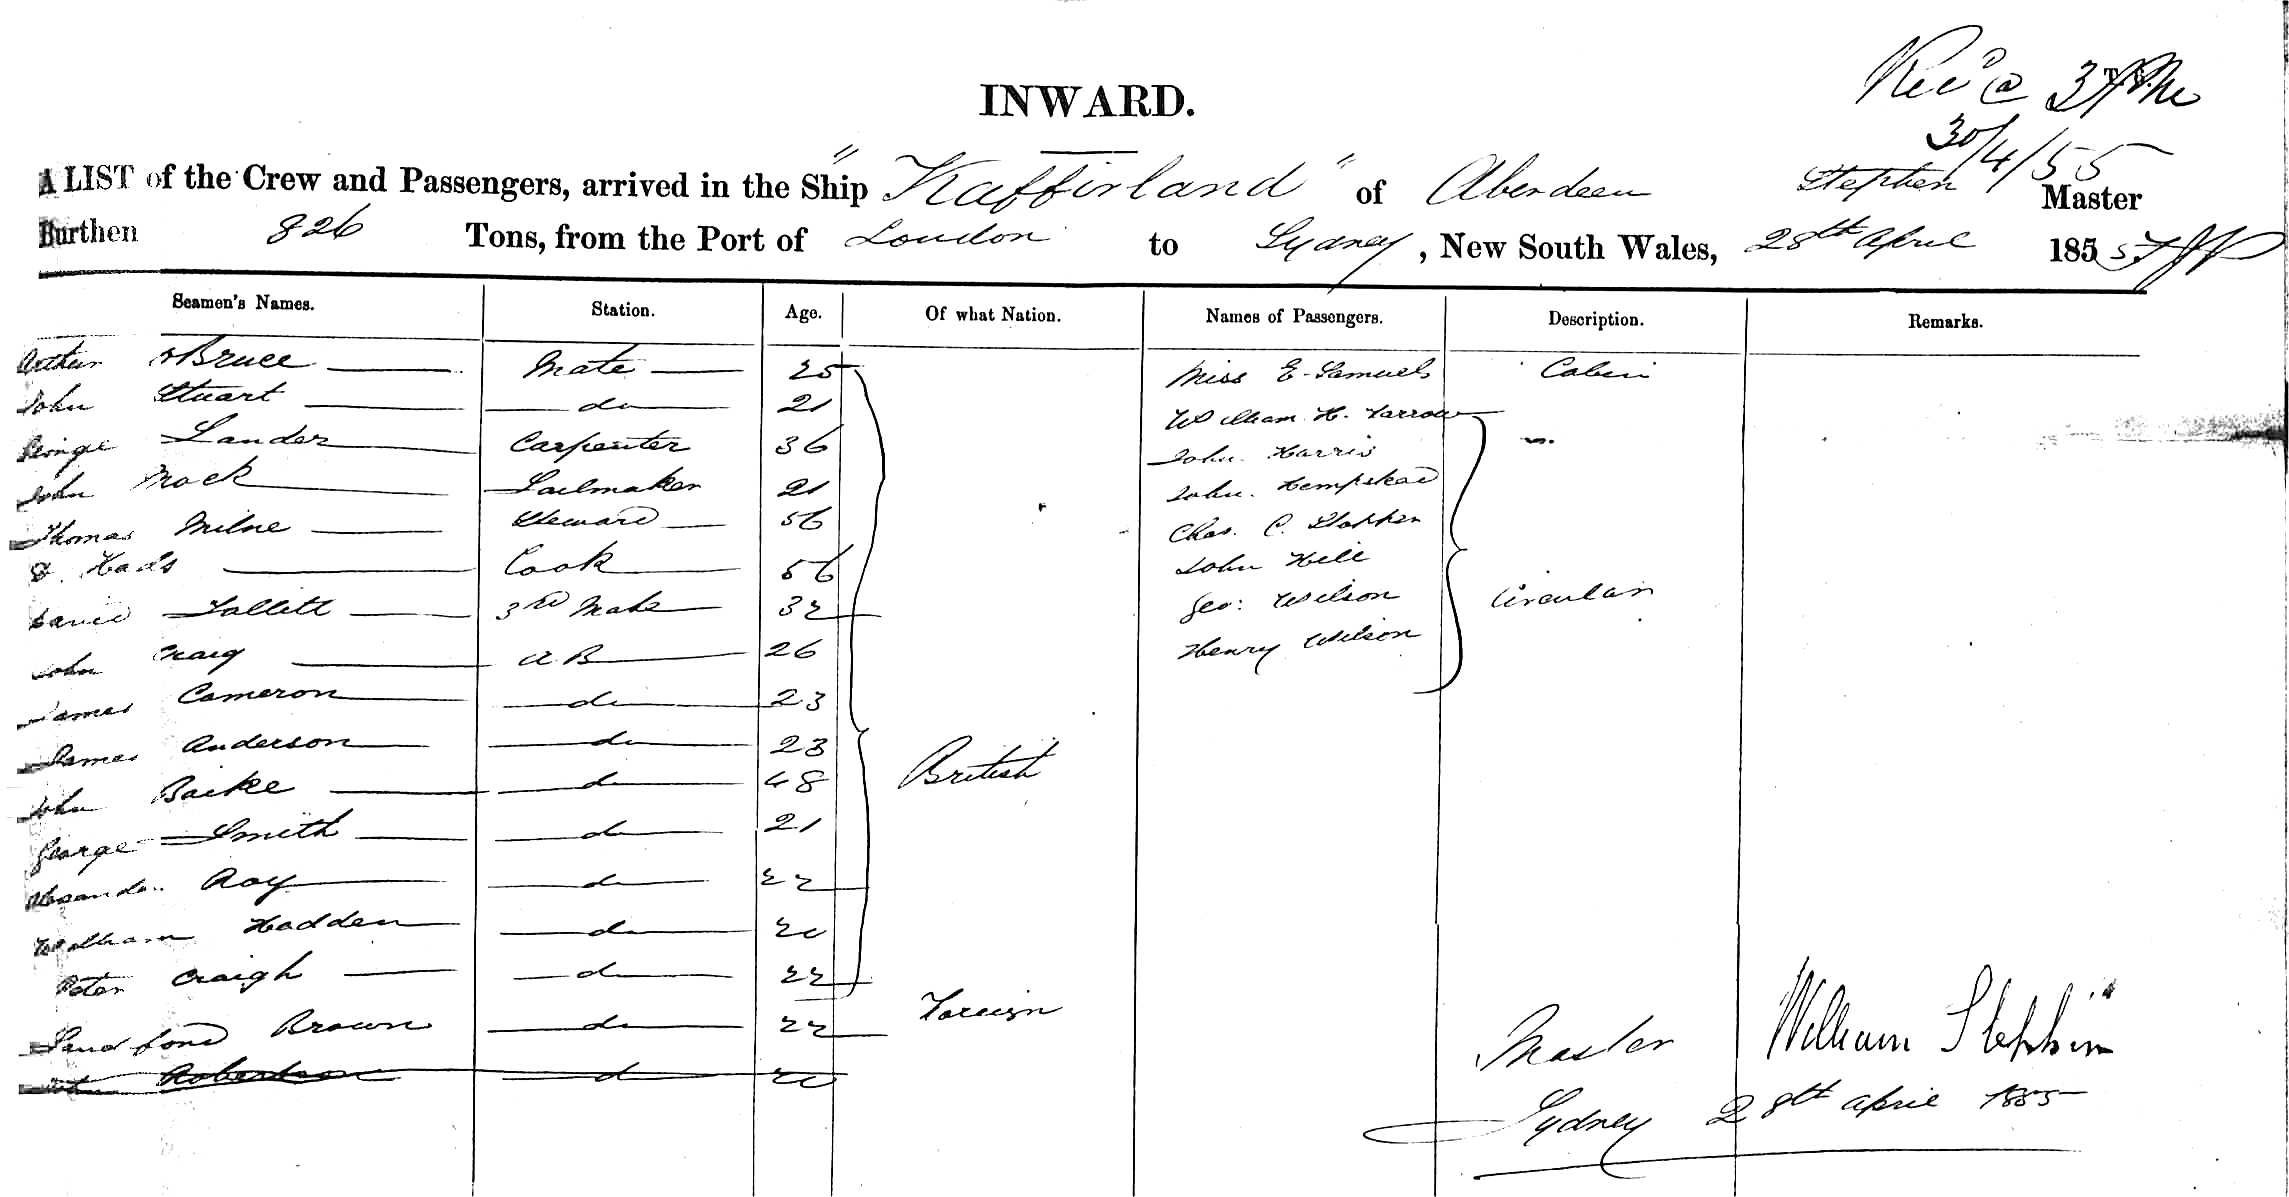 INWARD.
Rec'd @ 3 PM
30/4/55
A LIST of the Crew and Passengers, arrived in the Ship "Kaffirland" of Aberdeen Stephen Master
Burthen 826 Tons, from the Port of London to Sydney, New South Wales, 28th April 1855
Seamen's Names. Station. Age. Of what Nation. Names of Passengers. Description. Remarks.
Arthur Bruce Mate 25 Miss E. Samuels Cabin
John Stuart do 21 William H. Farrow
George Lander Carpenter 36 John Harris "
John Mack Sailmaker 21 John. Hempstead
Thomas Milne Steward 56 Chas. C.
Cook 56 John Hill
David Follett 3rd Mate 32 Geo: Wilson Circular
John Craig AB 26 Henry Wilson
James Cameron do 23
James Anderson do 23
John Baike do 48 British
George Smith do 21
Alexander Roy do 22
William Hadden do 20
Peter Craigh do 22
Sandford Brown do 22 Foreign
John Robertson do 20
Master William Stephen
Sydney 28th April 1855